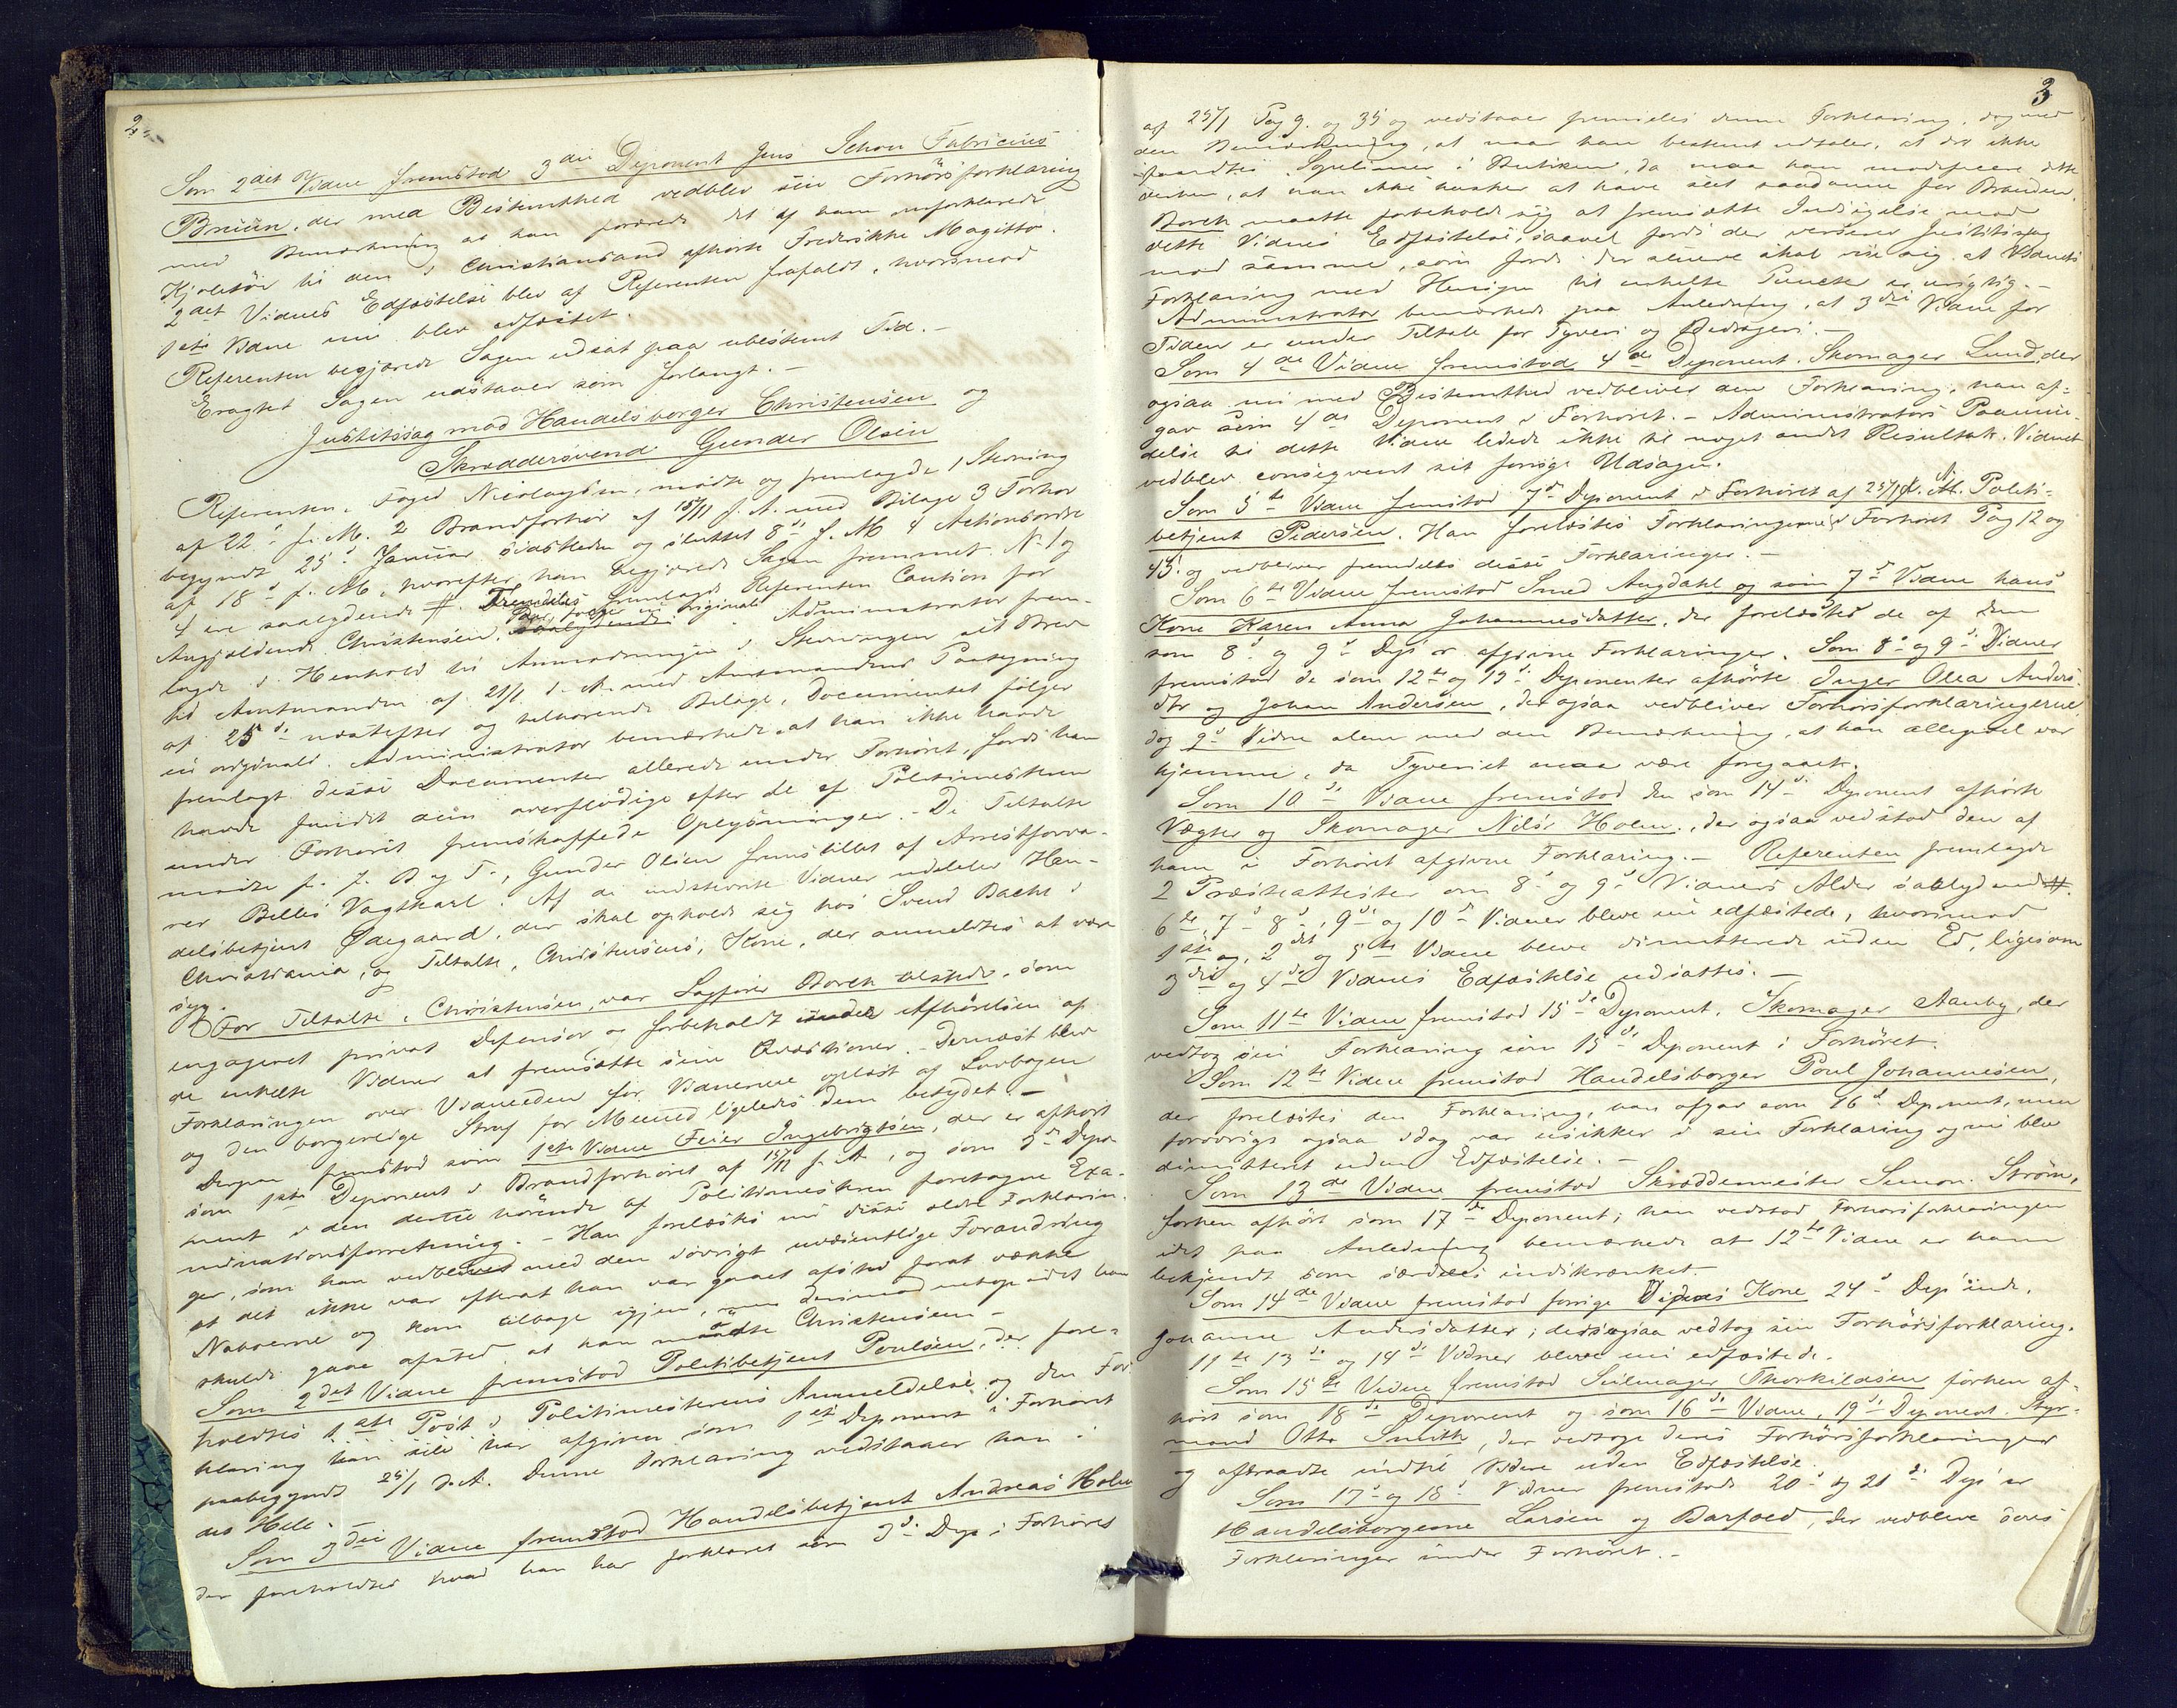 2
Som 2det Vidne fremstod 3die Deponent Jens Schou Fabricius
Bruun, der med Bestemthed vedblev sin Forhørsforklaring
med Bemærkning at han forærede det af ham omforklarede
Kjoletøi til den i Christiansand afhørte Fredrikke Magitta.
2det Vidnes Edfæstelse blev af Referenten frafaldt, hvorimod
1ste Vidne nu blev edfæstet.
Referenten begjærede Sagen udsat paa ubestemt Tid. –
Eragtet Sagen udstaaer som forlangt. –
Justitssag mod Handelsborger Christensen og
Skræddersvend Gunder Olsen
Referenten, Foged Nicolaysen, mødte og fremlagde 1 Stevning
af 22de f. M. 2 Brandforhør af 15/11 f. A. med Bilage 3 Forhør
begyndt 25de Januar sidstleden og sluttet 8de f. M 4 Actionsordre
af 18de f. M, hvorefter han begjærede Sagen fremmet. No 1 og
4 ere saalydende #. Fremdeles fremlagde Referenten Caution for
Angjældende Christensen, saalydende Administrator frem-
lagde i Henhold til Anmodningen i Stevningen sit Brev
til Amtmanden af 21/1 d. A. med Amtmandens Paategning
af 25de næstefter og tilhørende Bilage, Documentet følger
in originali. Administrator bemærkede, at han ikke havde
fremlagt disse Documenter allerede under Forhøret, fordi han
havde fundet dem overflødige efter de af Politimesteren
under Forhøret fremskaffede Oplysninger. – De Tiltalte
mødte f. f. B og T., Gunder Olsen fremstillet af Arrestforva-
rer Belles Vagtkarl. Af de indstevnte Vidner udeblev Han-
delsbetjent Ødegaard, der skal opholde sig hos Svend Bache i
Christiania, og Tiltalte, Christensens, Kone, der anmeldtes at være
syg.
For Tiltalte, Christensen, var Sagfører Borch tilstede, som
engageret privat Defensor og forbeholdt under Afhørelsen af
de enkelte Vidner at fremsætte sine Qvæstioner. – Dernæst blev
Forklaringen over Vidneeden for Vidnerne oplæst af Lovbogen
og den borgerlige Straf for Meened ligeledes dem betydet. –
Derpaa fremstod som 1ste Vidne Feier Ingebrigtsen, der er afhørt
som 1ste Deponent i Brandforhøret af 15/11 f. A., og som 2den Depo-
nent i den dertil hørende af Politimesteren foretagne Exa-
minationsforretning. – Han forelæstes nu disse oldre Forklarin-
ger, som han vedblived med den iøvrigt uvæsentlige Forandring
at det ikke var efterat han var gaaet afsted forat vække
Naboerne og kom tilbage igjen, men derimod netop idet han
skulde gaae afsted, at han mødte Christensen –
Som 2det Vidne fremstod Politibetjent Poulsen, der fore-
holdtes 1ste Post i Politimesterens Anmeldelse og den For-
klaring han selv har afgiven som 1ste Deponent i Forhøret
paabegyndt 25/1 d. A. Denne Forklaring vedstaaer han i
det Hele.
Som 3die Vidne fremstod Handelsbetjent Andreas Holm
der foreholdtes hvad han har forklaret som 3de Dep i Forhøret
3
af 25/1 Pag 9. og 35 og vedstaaer fremdeles denne Forklaring, dog med
den Bemærkning, at naar han bestemt udtaler, at der ikke
fandtes Spelimer i Butiken, da maa han modificere dette
derhen, at han ikke husker at have seet saadanne før Branden.
Borch maatte forbeholde sig at fremsætte Indsigelse mod
dette Vidnes Edfæstelse, saavel fordi der verserer Justitssag
mod samme, som fordi der senere skal vise sig, at Vidnets
Forklaring med Hensyn til enkelte Puncter er urigtig. –
Administrator bemærkede paa Anledning, at 3die Vidne for
Tiden er under Tiltale for Tyveri og Bedrageri. –
Som 4de Vidne fremstod 4de Deponent, Skomager Lund, der
ogsaa nu med Bestemthed vedbliver den Forklaring, han af-
gav som 4de Deponent i Forhøret. – Administrators Paamin-
delse til dette Vidne ledede ikke til noget andet Resultat. Vidnet
vedblev conseqvent sit forrige Udsagn.
Som 5te Vidne fremstod 7de Deponent i Forhøret af 25/1 d. A. Politi-
betjent Pedersen. Han forelæstes Forklaringerne i Forhøret Pag 12 og
45. og vedbliver fremdeles disse Forklaringer. –
Som 6te Vidne fremstod Smed Angdahl og som 7de Vidne hans
Kone Karen Anna Johannesdatter, der forelæstes de af dem
som 8de og 9de Dep er afgivne Forklaringer. Som 8de og 9de Vidner
fremstod de som 12te og 13de Deponenter afhørte Inger Olea Anders-
dtr og Johan Andersen, der ogsaa vedbliver Forhørsforklaringerne,
dog 9de Vidne alene med den Bemærkning, at han allegevel var
hjemme, da Tyveriet maa være foregaaet.
Som 10de Vidne fremstod den som 14de Deponent afhørte
Vægter og Skomager Nilsr Holm, der ogsaa vedstod den af
ham i Forhøret afgivne Forklaring. – Referenten fremlagde
2 Præsteattester om 8de og 9de Vidners Alder saalydende #.
6te, 7de 8de, 9de og 10de Vidner bleve nu edfæstede, hvorimod
1ste og, 2det og 5te Vidne bleve dimitterede uden Ed, ligesom
3die og 4de Vidnes Edfæstelse udsattes. –
Som 11te Vidne fremstod 15de Deponent, Skomager Aanby, der
vedtog sin Forklaring som 15de Deponent i Forhøret.
Som 12te Vidne fremstod Handelsborger Poul Johannesen,
der forelæstes den Forklaring, han afgav som 16de Deponent, men
forøvrigt ogsaa idag var usikker i sin Forklaring og nu blev
dimitteret uden Edfæstelse. –
Som 13de Vidne fremstod Skræddermester Simon Strøm,
forhen afhørt som 17de Deponent; han vedstod Forhørsforklaringen
idet paa Anledning bemærkede at 12te Vidne er ham
bekjendt som særdeles indskrænket.
Som 14de Vidne fremstod forrige Vidnes Kone 24de Dep'inde,
Johanne Andersdatter; der ogsaa vedtog sin Forhørsforklaring.
11te 13de og 14de Vidner bleve nu edfæstede.
Som 15de Vidne fremstod Seilmager Thorkildsen forhen af-
hørt som 18de Deponent og som 16de Vidne, 19de Deponent Styr-
mand Otto Smith, der vedtoge deres Forhørsforklaringer
og aftraadte indtil Videre uden Edfæstelse.
Som 17de og 18de Vidner fremstode 20de og 21de Dep'er
Handelsborgerne Larsen og Barfoed, der vedbleve deres
Forklaringer under Forhøret. –